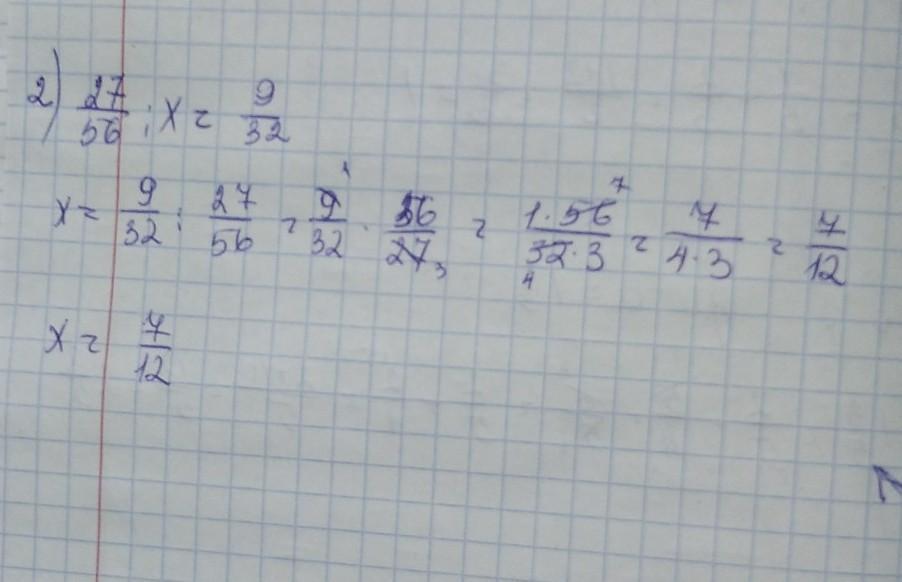 2) 27/56 : x = 9/32
x = 9/32 : 27/56 = 9/32 · 56/27 = 1·56/32·3 = 7/4·3 = 7/12
x = 7/12